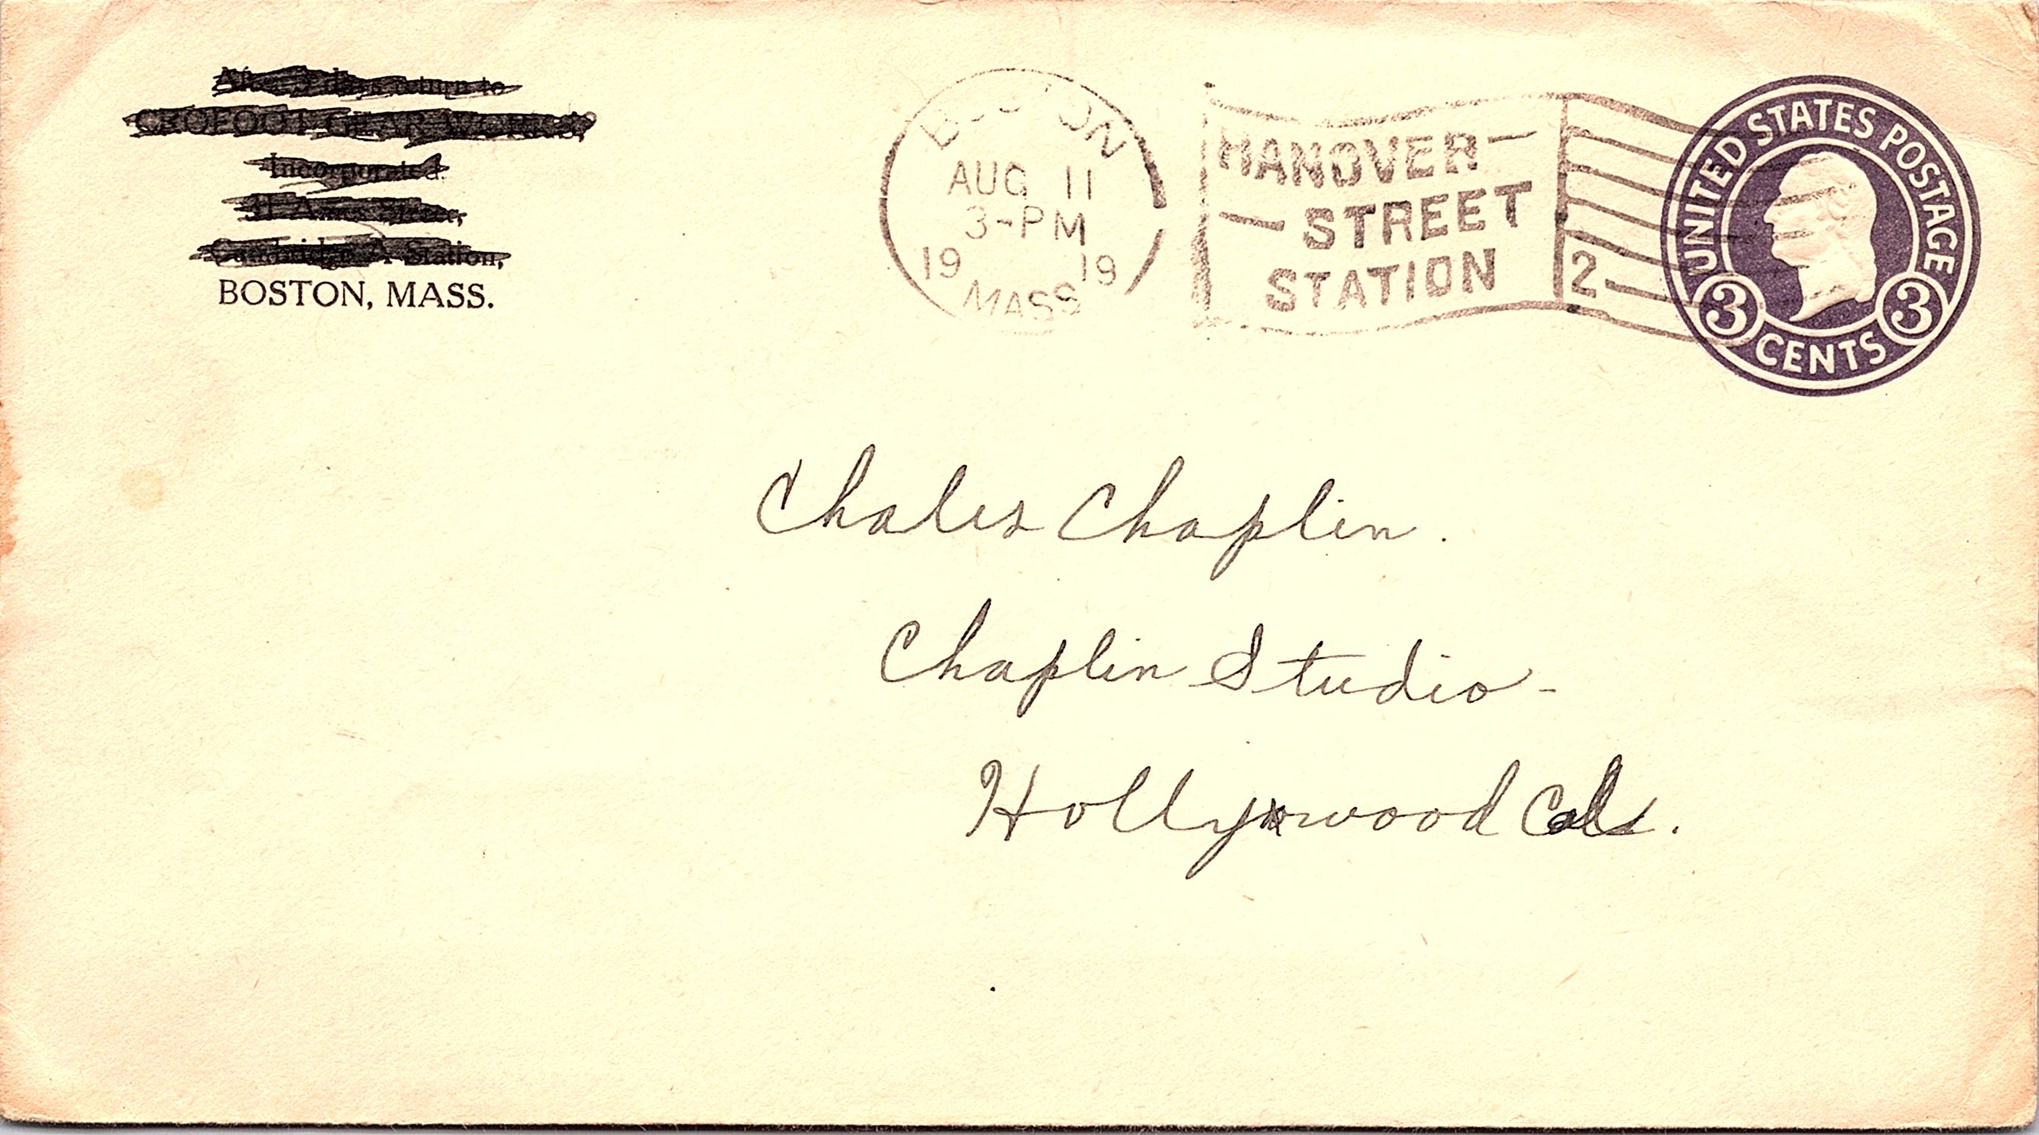 After 5 days return to
CROFOOT GEAR WORKS,
Incorporated.
31 Ames Street,
Cambridge A Station,
BOSTON, MASS.
BOSTON
AUG 11
3-PM
19 19
MASS
HANOVER
STREET
STATION
2
UNITED STATES POSTAGE
3 CENTS 3
Chales Chaplin.
Chaplin Studio-
Hollywood Cal.